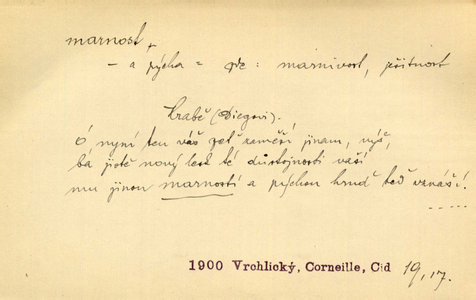 marnost,
— a pýcha = : marnivost, ješitnost
Hrabě (Diegovi).
Ó, nyní ten váš zeť zaměří jinam, výš,
bá jistě nový lesk té důstojnosti vaší
mu jinou marností a pýchou hruď teď vznáší!
.....
1900 Vrchlický, Corneille, Cid 19, 17.